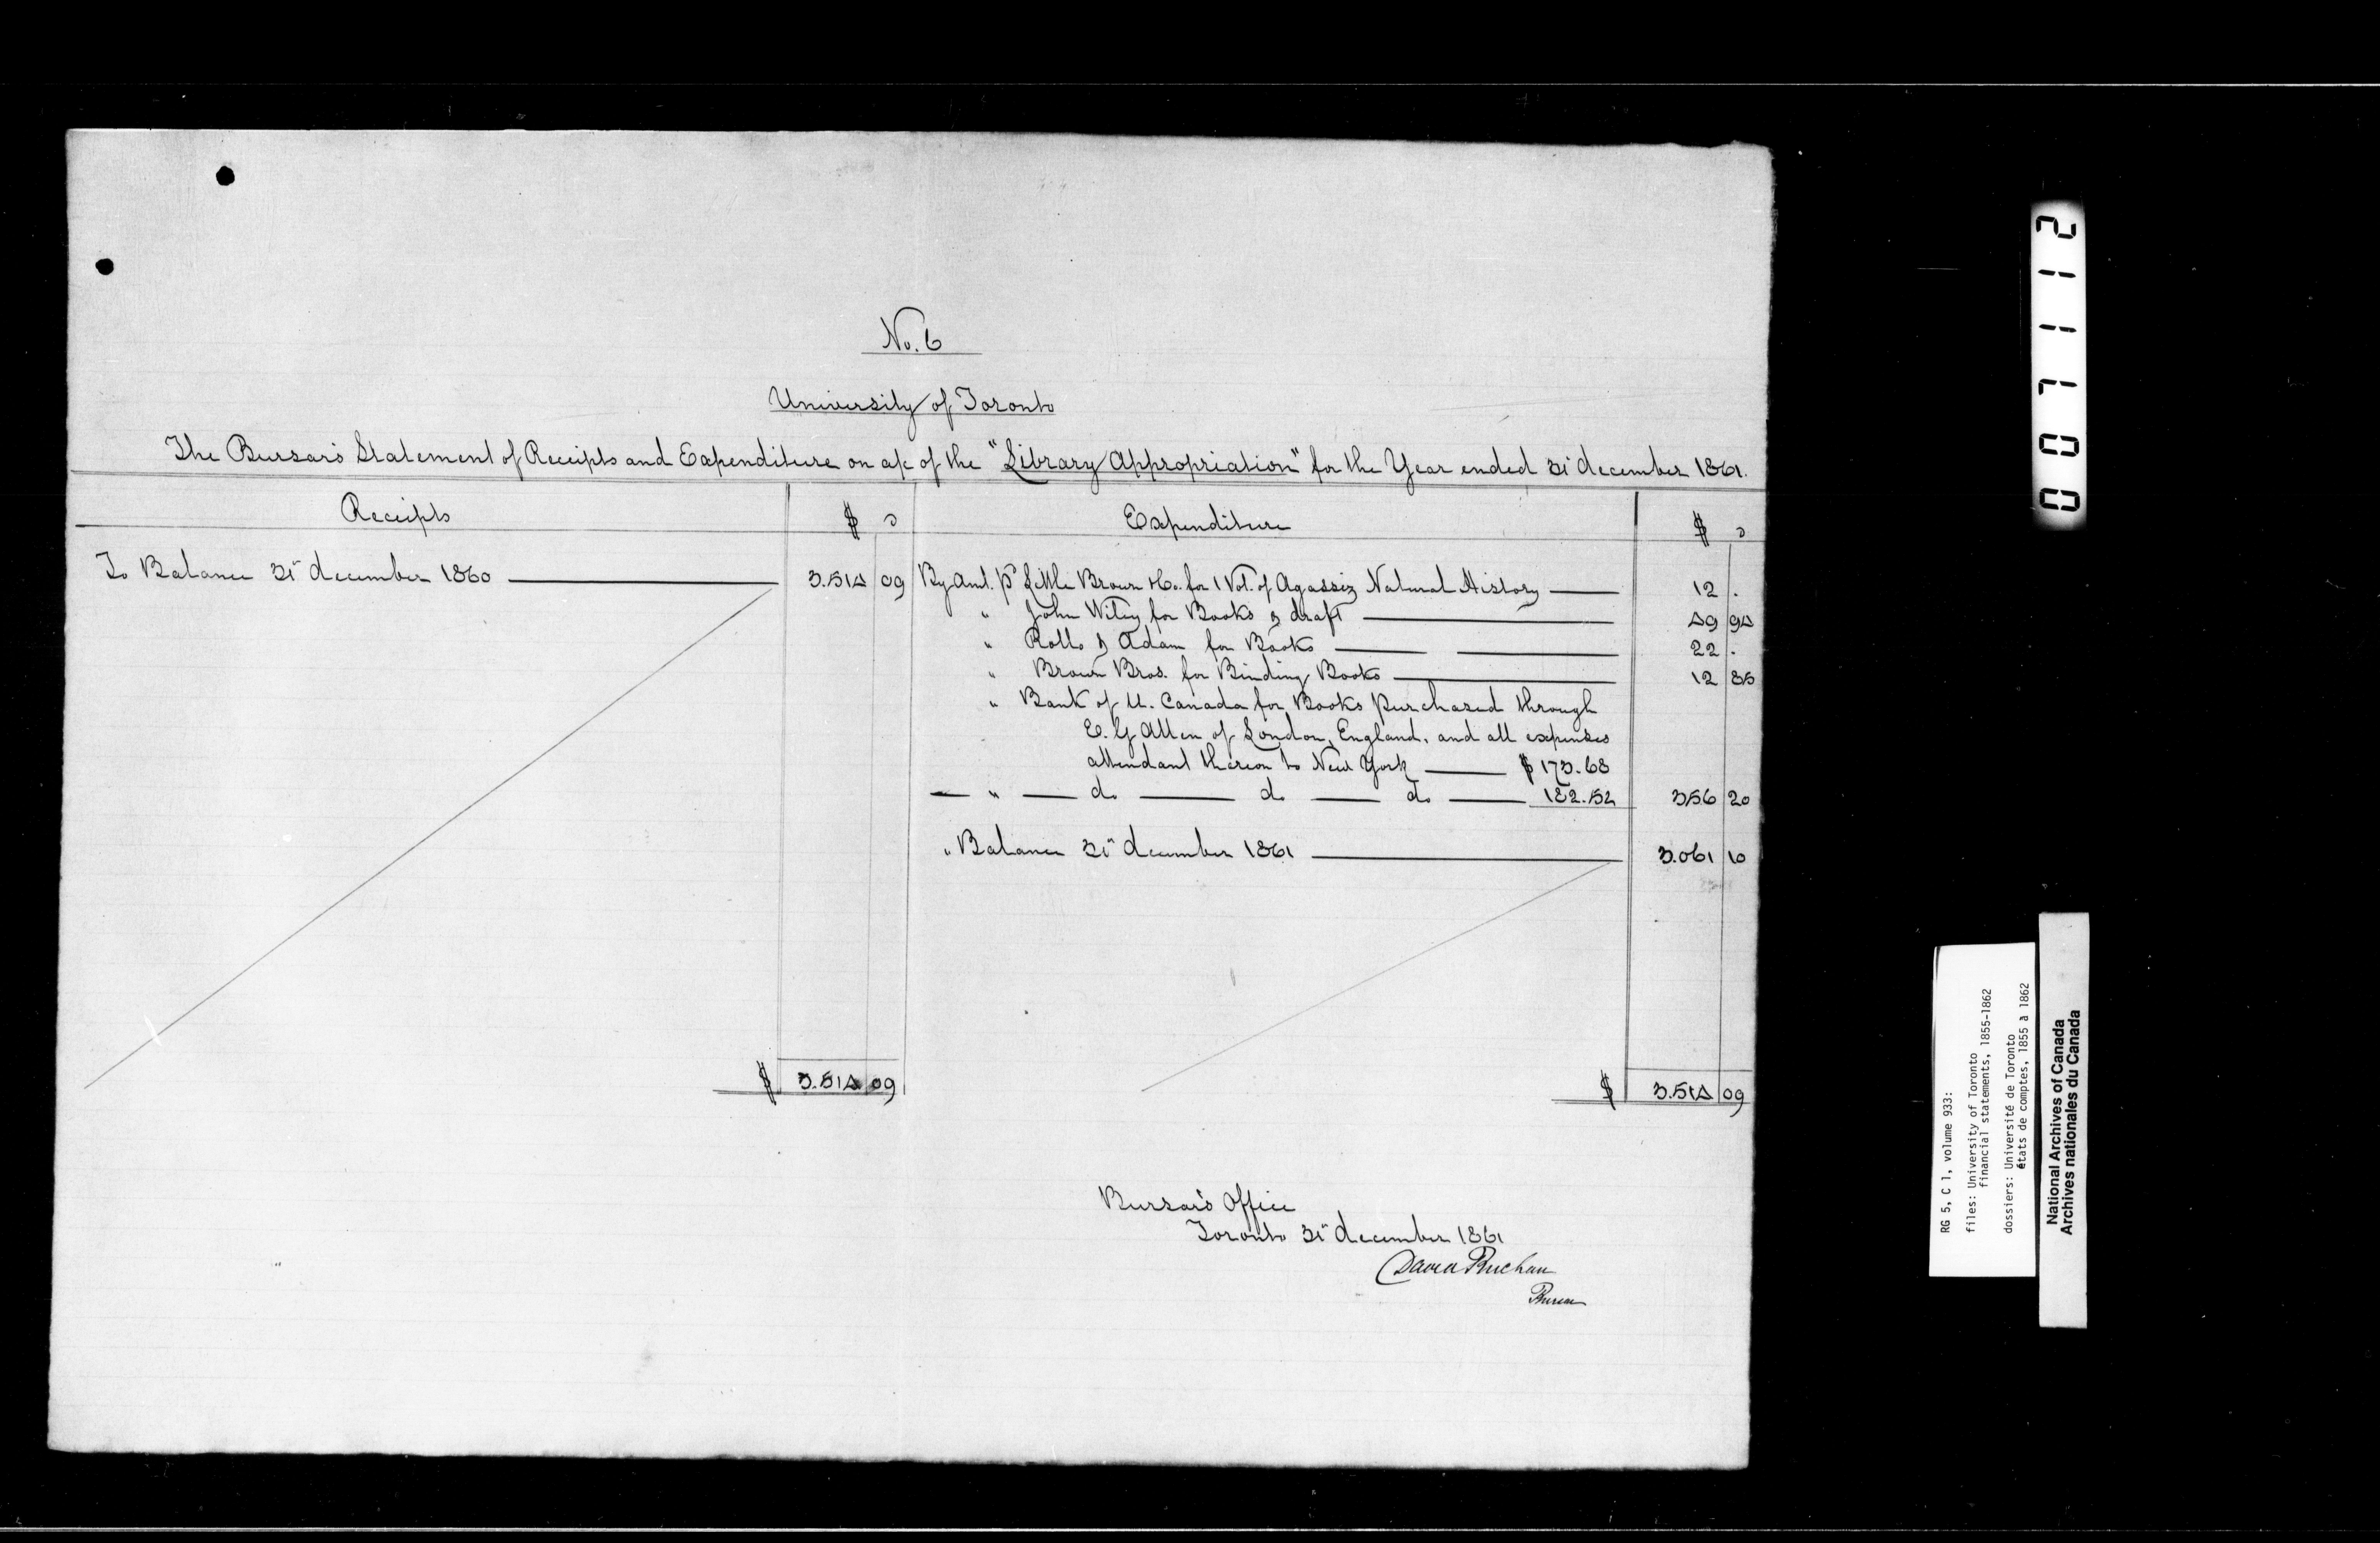 No. 6
University of Toronto
The Bursar's Statement of Receipts and Expenditure on a/c of the "Library Appropriation" for the Year ended 31st december 1861.
Receipts $ c Expenditure $ c
To Balance 31st december 1860 3.514 09 By Amt. pd Little Brown & Co. for 1 Vol. of Agassiz Natural History 12 .
" John Wiley for Books & draft 49 94
" Rollo & Adam for Books 22 .
" Brown Bros. for Binding Books 12 85
" Bank of U. Canada for Books purchased through
E. G Allen of London, England, and all expenses
attendant thereon to New York $ 173.68
" do do do 182.52 356 20
" Balance 31st december 1861 3.061 10
$ 3.514 09 $ 3.514 09
Bursar's Office
Toronto 31st december 1861
David Buchan
Bursar
0071112
RG 5, C 1, volume 933:
files: University of Toronto
financial statements, 1855-1862
dossiers: Université de Toronto
états de comptes, 1855 à 1862
National Archives of Canada
Archives nationales du Canada